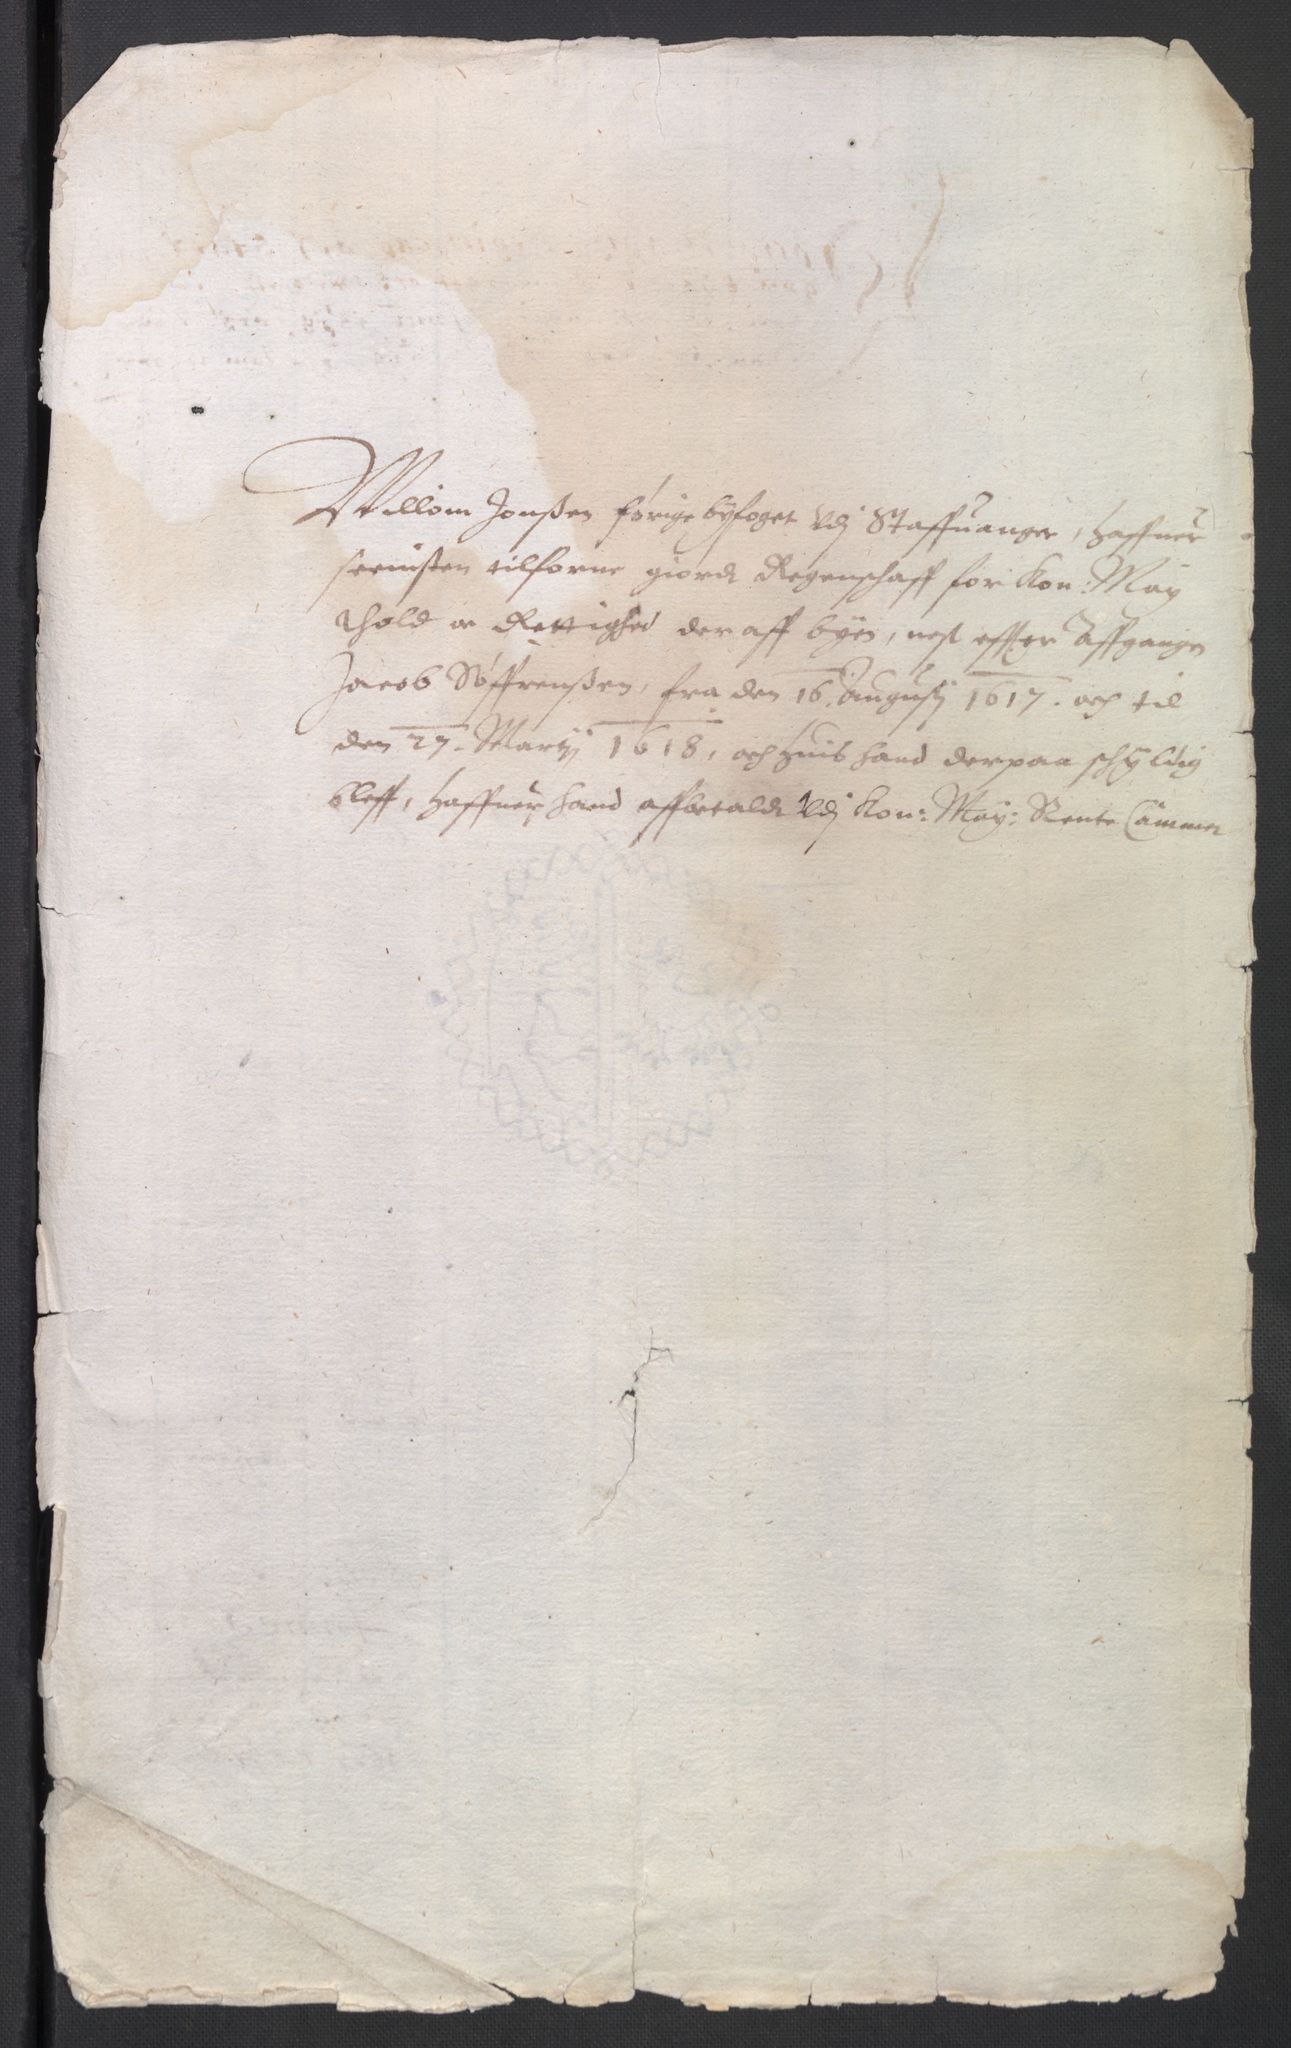 Willom Jonßen forige byfoget Vdj Staffuanger, haffuer
seenisten tilforne giordt Regenschaff for Kon: May
thold oc Rettighed der aff byen, nest effter affgangen
Jacob Søffrenßen, fra den 16. Augustj 1617. och til
den 27. Martij 1618, och huis hand derpaa schyldig
bleff, haffuer hand affbetaldt Vdj Kon: May: Rente Cammer